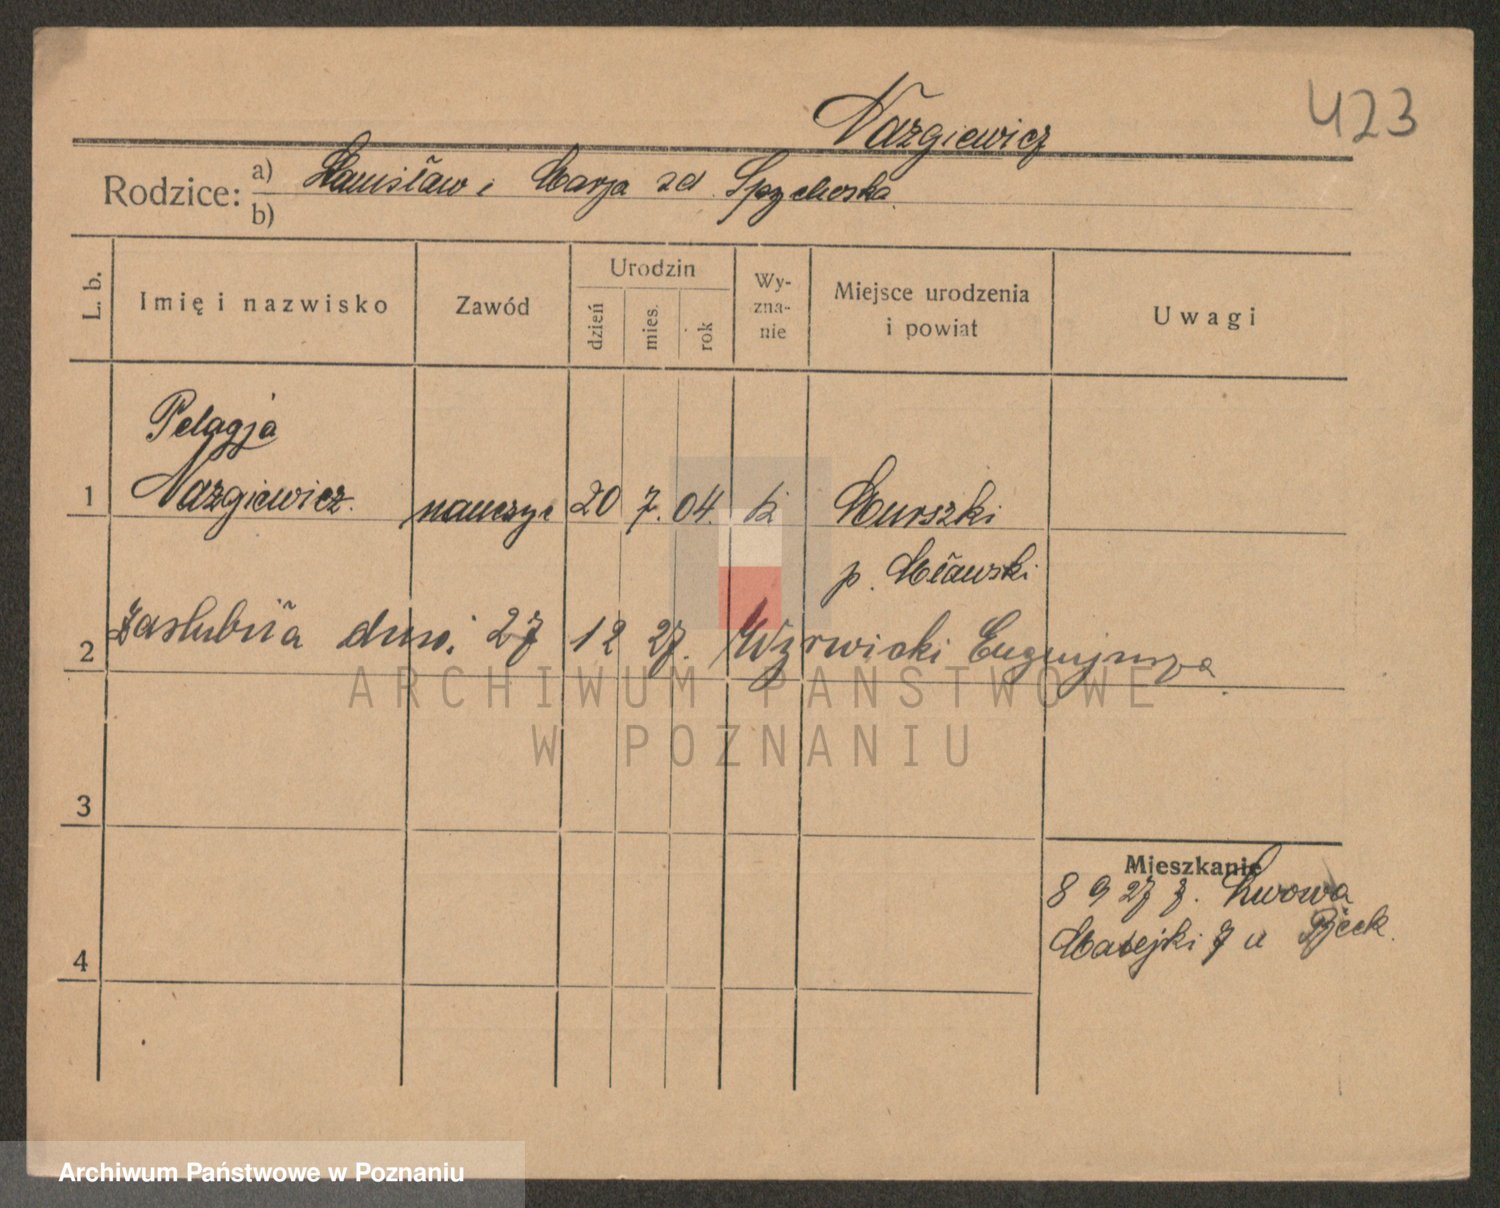 423
Nazgiewicz
Rodzice: a) Stanisław i Marja zd. Spychoska.
b)
L. b.
Imię i nazwisko
Zawód
Urodzin
dzień
mies.
rok
Wy-
zna-
nie
Miejsce urodzenia
i powiat
Uwagi
Pelagja
1 Nazgiewicz. 20 7. 04. k
p. Mławski
2 Zaślubiła dnia 27 12 27.
ARCHIWUM PAŃSTWOWE
W POZNANIU
3
Mieszkanie
8 9 27 z. Lwowa
Matejki 7 u
4
Archiwum Państwowe w Poznaniu